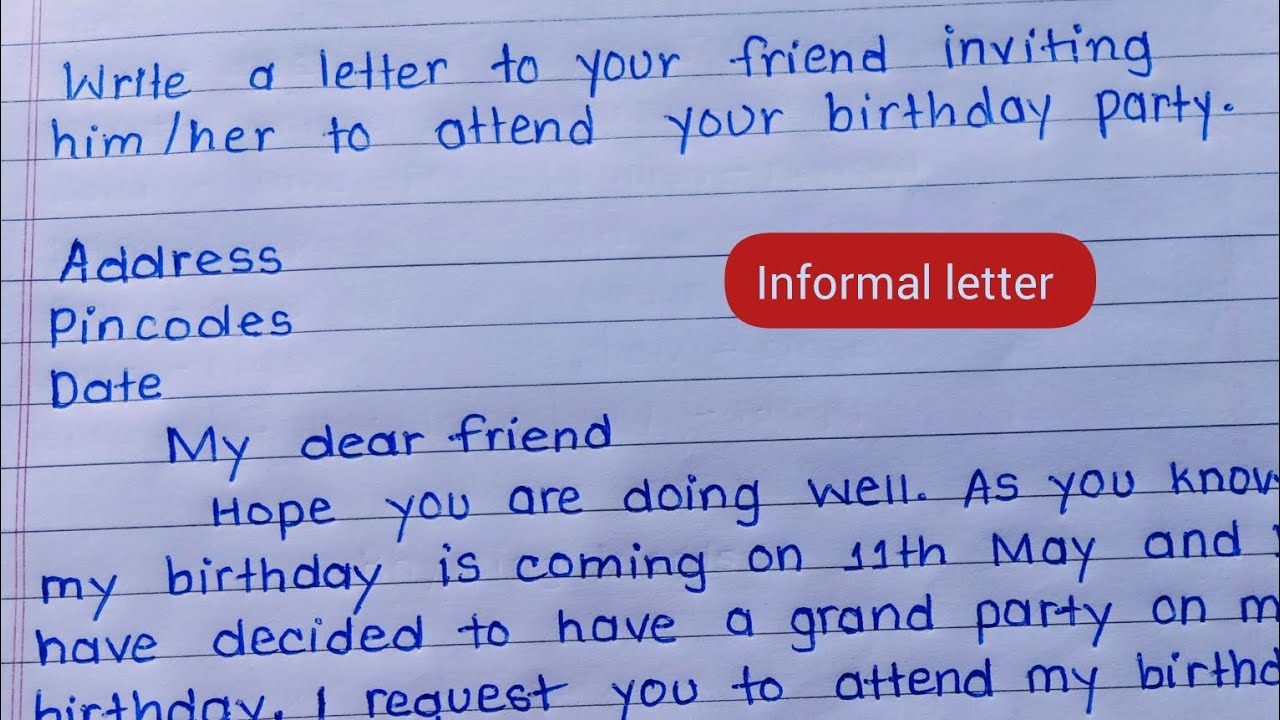 Write a letter to your friend inviting
him/her to attend your birthday party.
Informal letter
Address
Pincodes
Date
My dear friend
Hope you are doing well. As you know
my birthday is coming on 11th May and
have decided to have a grand party on
birthday. I request you to attend my